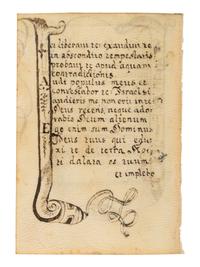 et liberavi te: exaudivi te
in abscondito tempestatis
probavi te apud aquam
contradictionis.
Audi populus meus et
contestabor te: Israel si
audieris me non erit in te
Deus recens, neque ado-
rabis Deum alienum
Ego enim sum Dominus
Deus tuus qui edu-
xi te de terra
os tuum
et implebo